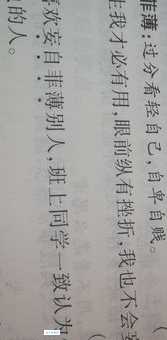 菲薄:过分看轻自己,自卑自贱。
生我才必有用,眼前纵有挫折,我也不会
(
欢妄自菲薄别人,班上同学一致认为
的人。
(